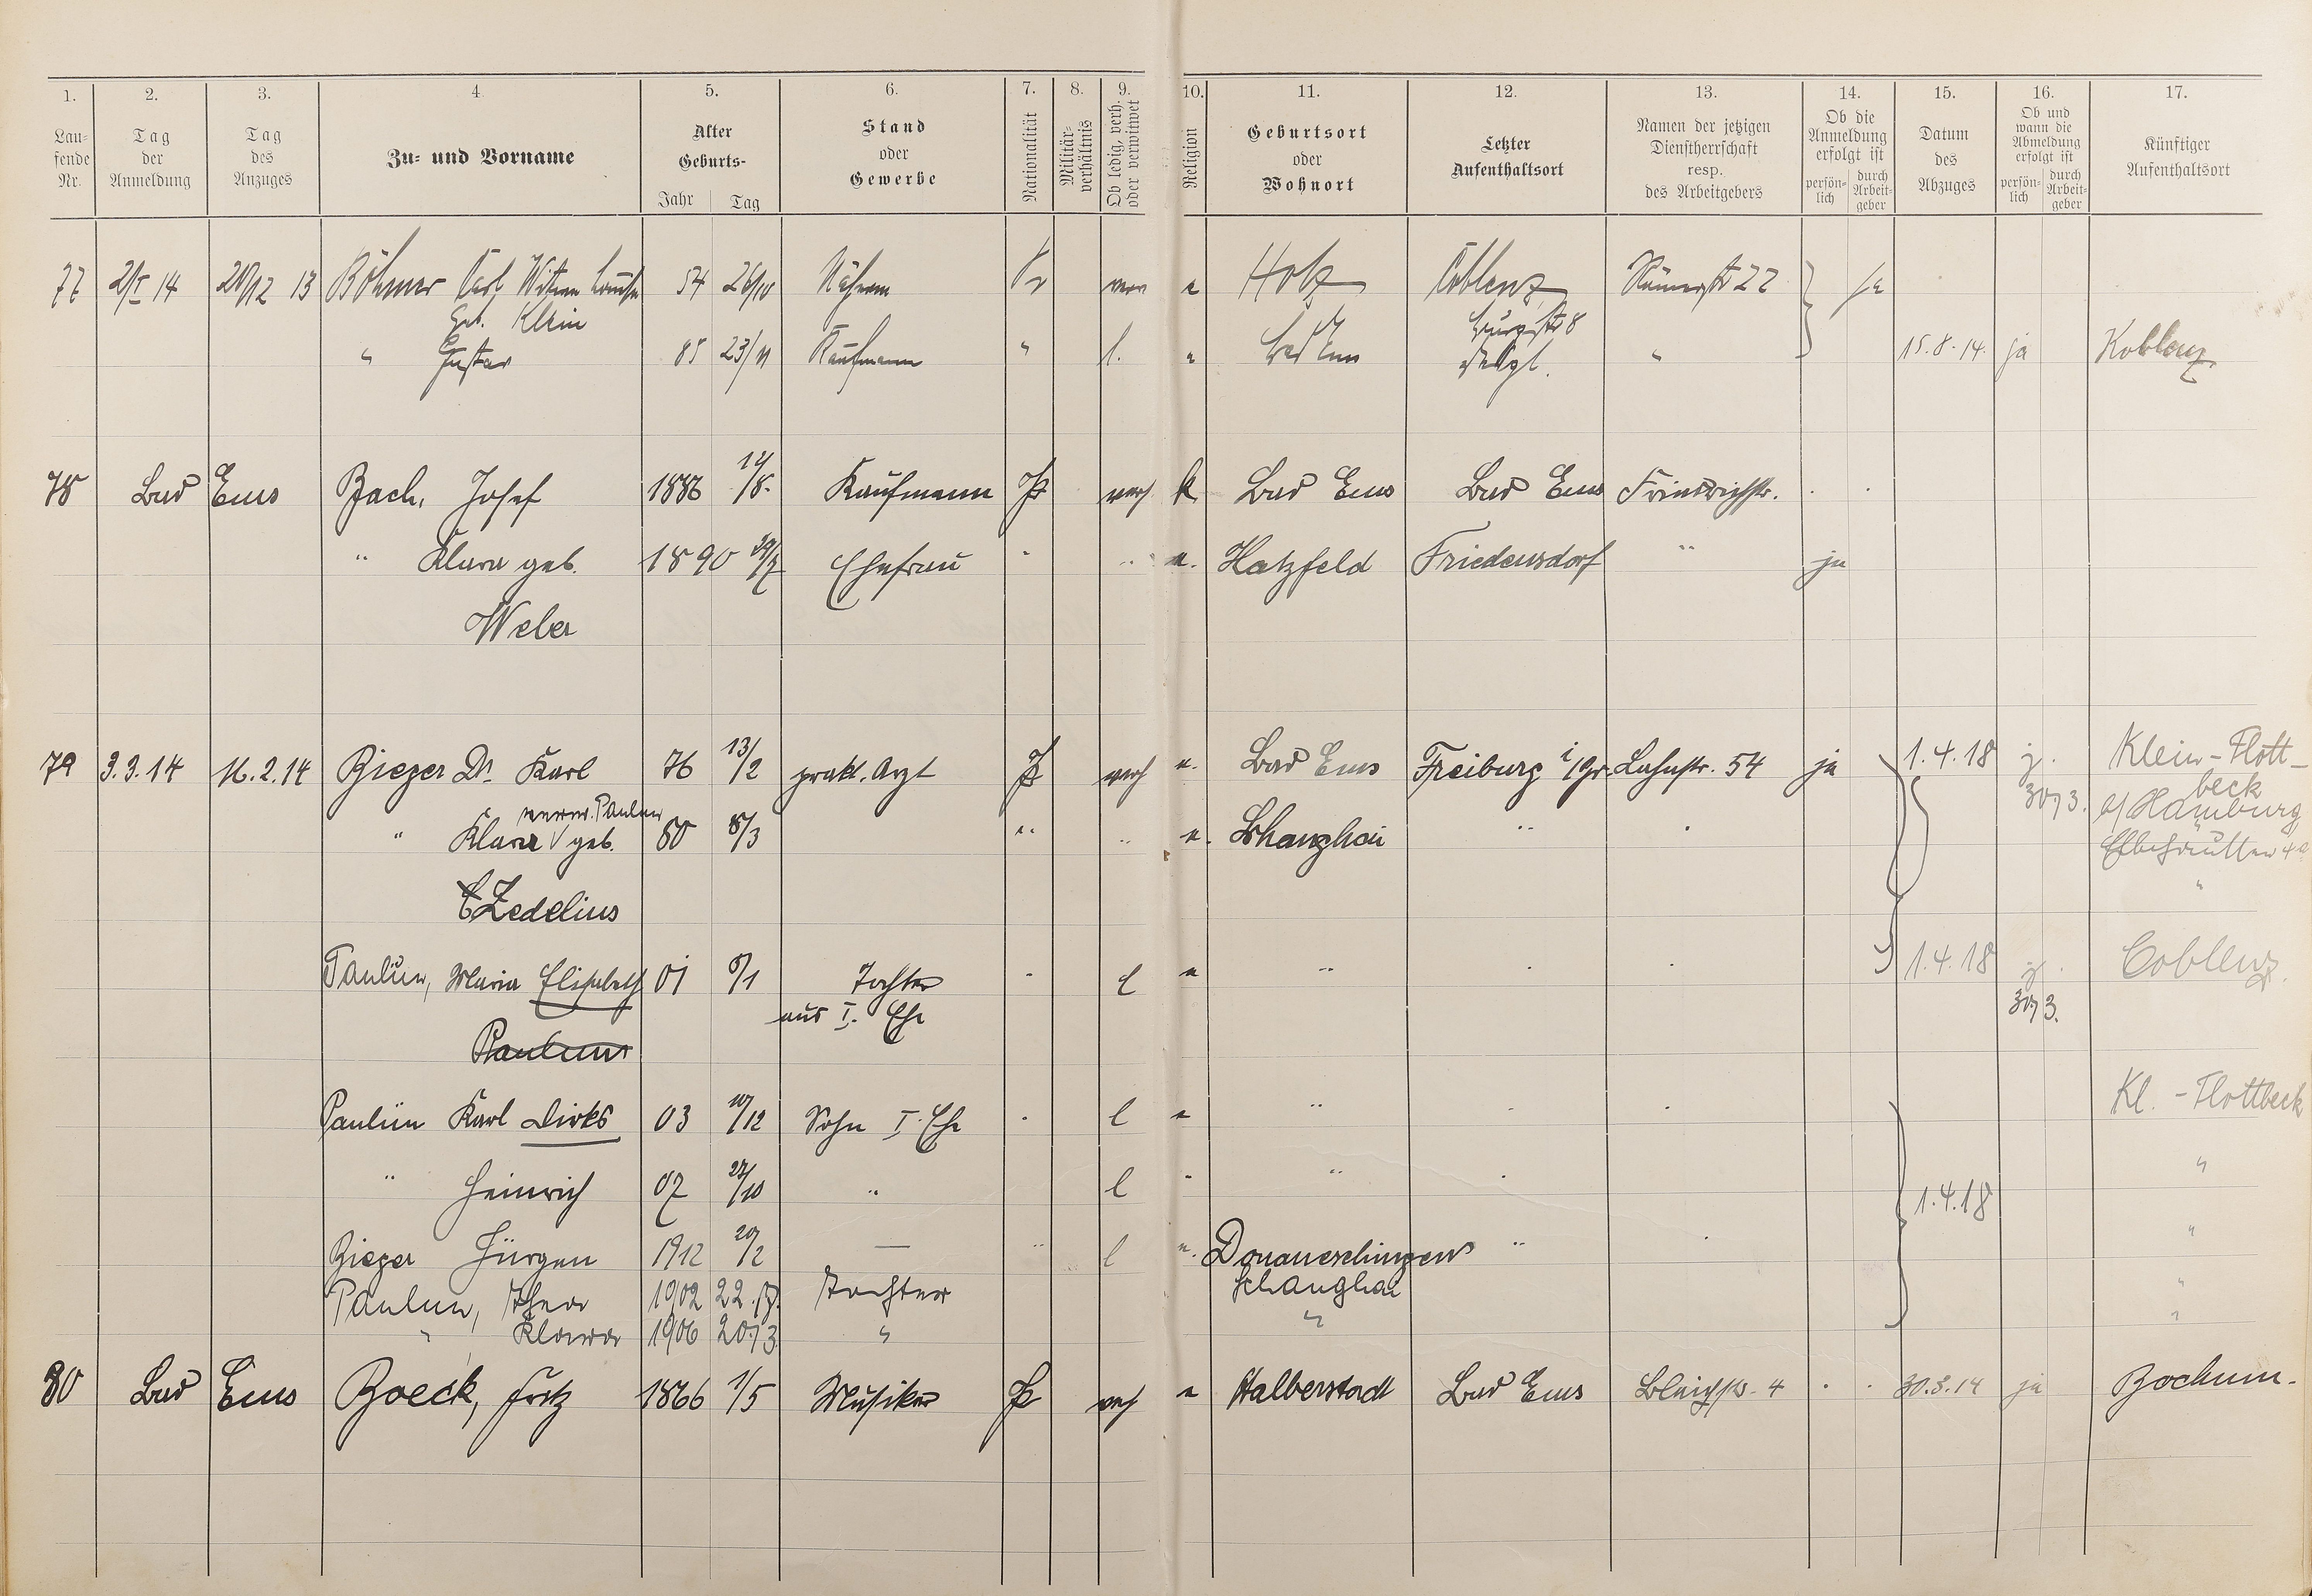 1. 2. 3. 4. 5. 6. 7. 8. 9. 10. 11. 12. 13. 14. 15. 16. 17.
Lau-
fende
Nr.
Tag
der
Anmeldung
Tag
des
Anzuges
Zu- und Vorname
Alter
Geburts-
Jahr Tag
Stand
oder
Gewerbe
Nationalität
Militär-
verhältnis
Ob ledig, verh.
oder verwitwet
Religion
Geburtsort
oder
Wohnort
Letzter
Aufenthaltsort
Namen der jetzigen
Dienstherrschaft
resp.
des Arbeitgebers
Ob die
Anmeldung
erfolgt ist
persön-
lich
durch
Arbeit-
geber
Datum
des
Abzuges
Ob und
wann die
Abmeldung
erfolgt ist
persön-
lich
durch
Arbeit-
geber
Künftiger
Aufenthaltsort
77 2/I 14 13 Böhmer Karl Witwe Louise 54 26/10 Näherin Pr Holz Coblenz Römerstr 22 ja
geb. Klein Burgstr 8
" Gustav 85 23/11 Kaufmann " l. " Bad Ems desgl. " 15.8.14. ja Koblenz
78 Bad Ems Bach, Josef 1886 12/8. Kaufmann Pr verh k Bad Ems Bad Ems Friedrichstr.
" Klara geb. 1890 29/7 Ehefrau " " e. Hatzfeld Friedensdorf " ja
Weber
79 3.3.14 16.2.14 Bieger Dr. Karl 76 13/2 prakt. Arzt Pr verh e. Bad Ems Freiburg i/Br. Lahnstr. 54 ja 1.4.18 j. Klein-Flott-
beck
30/3. b/Hamburg
verw. Paulun
" Klara geb. 80 8/3 " " e. Shanghai " " Elbchaussee 4a
"
Zedelius
Paulun, Maria Elisabeth 01 9/1 Tochter " l e " " " 1.4.18 j. Coblenz.
aus I. Ehe 30/3.
Paulun
Paulun Karl Dirks 03 10/12 Sohn I. Ehe " l e " " " Kl.-Flottbeck
" Heinrich 07 27/10 " l " " " 1.4.18 "
Bieger Jürgen 1912 20/2 — " l e. Donaueschingen " " "
Paulun, Thea 1902 22. Tochter Schanghai "
" Klara 1906 20/3. " " "
80 Bad Ems Boeck, Fritz 1866 1/5 Musiker Pr verh e Halberstadt Bad Ems Bleichstr. 4 30.3.14 ja Bochum.